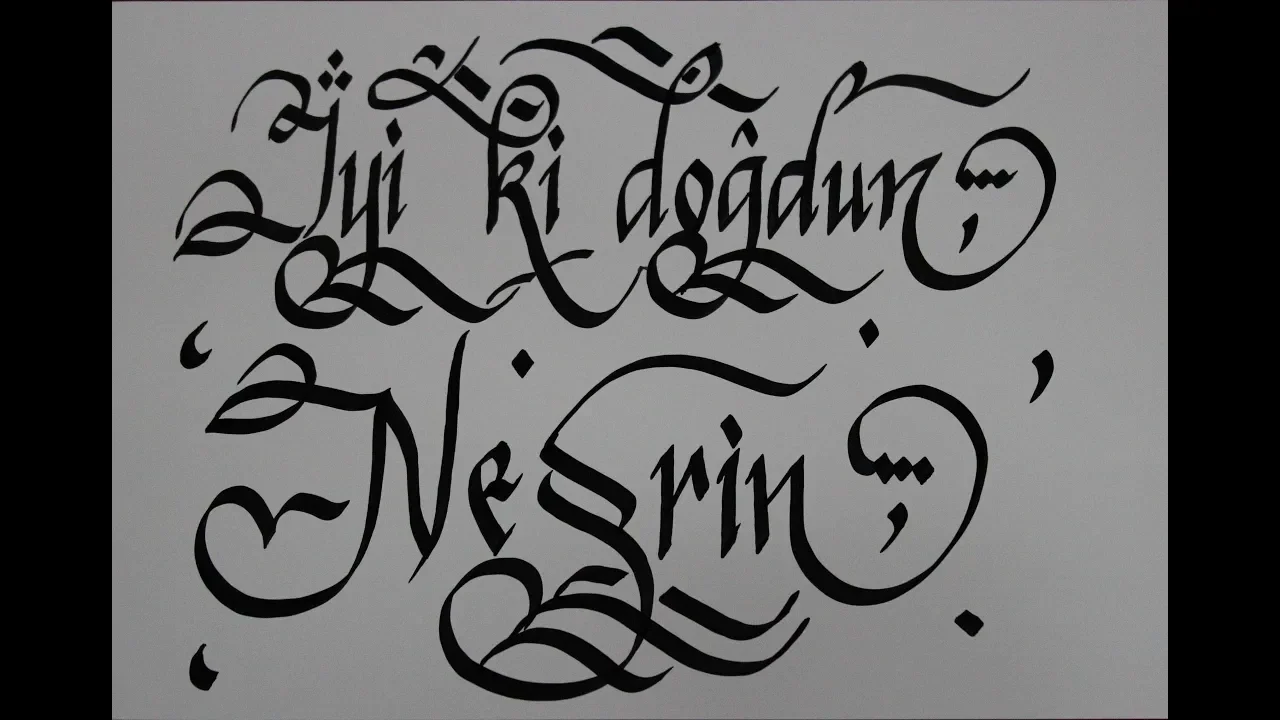 İyi ki doğdun
Nesrin